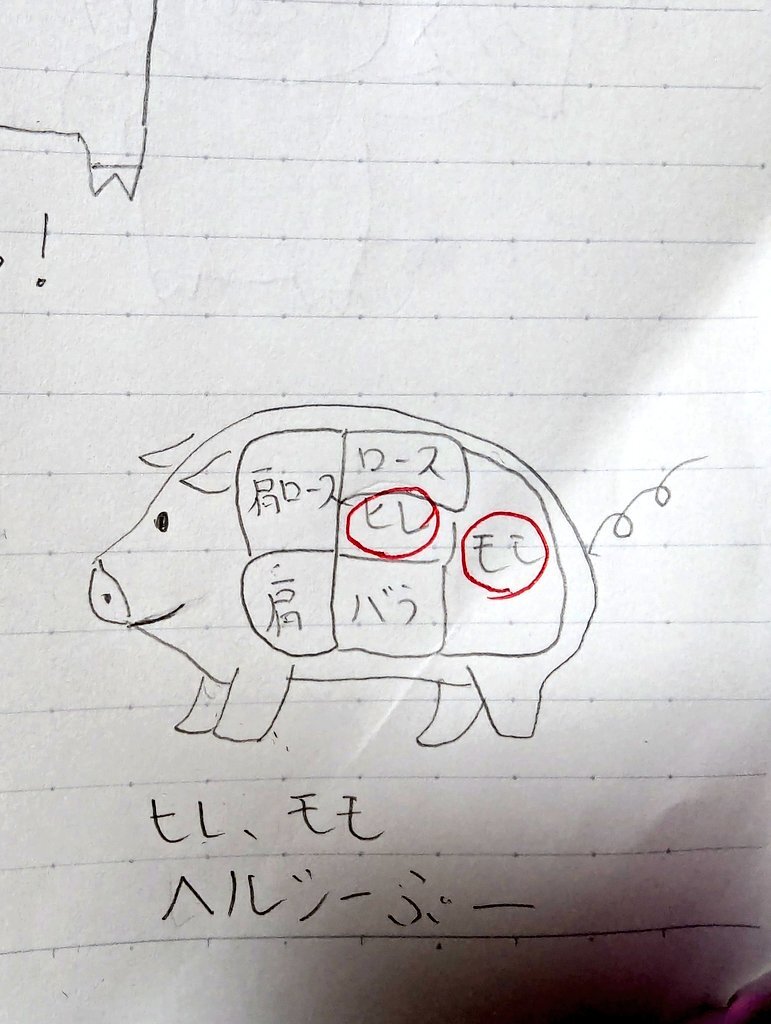 ！
肩ロース
ロース
ヒレ
モモ
肩
バラ
ヒレ、モモ
ヘルシーぶー